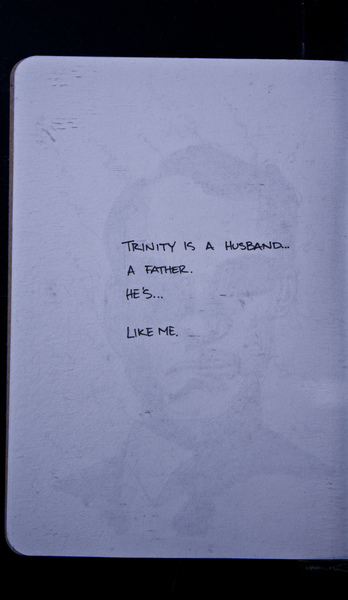 TRINITY IS A HUSBAND...
A FATHER.
HE'S...
LIKE ME.